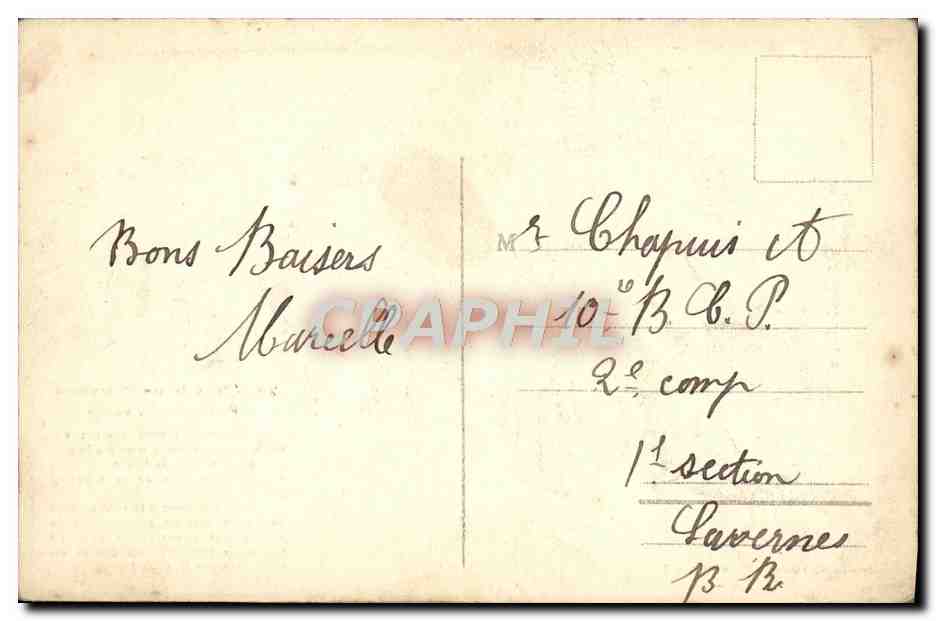 Bons Baisers
Marcelle
Mr Chapuis A
10e B. C. P.
2e comp
1e section
Savernes
B R
CRAPHIL